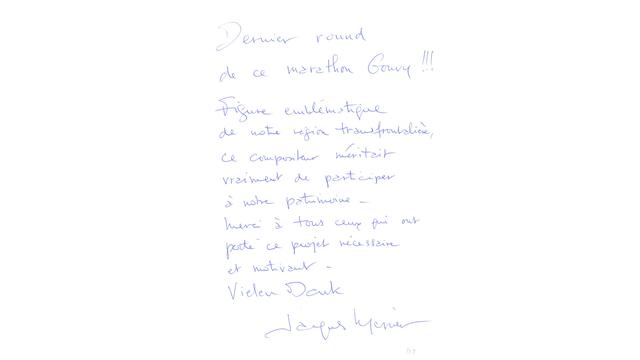 Dernier round
de ce marathon Gouvy !!!
Figure emblématique
de notre région transfrontalière,
ce compositeur méritait
vraiment de participer
à notre patrimoine -
Merci à tous ceux qui ont
porté ce projet nécessaire
et motivant -
Vielen Dank
Jacques Mercier